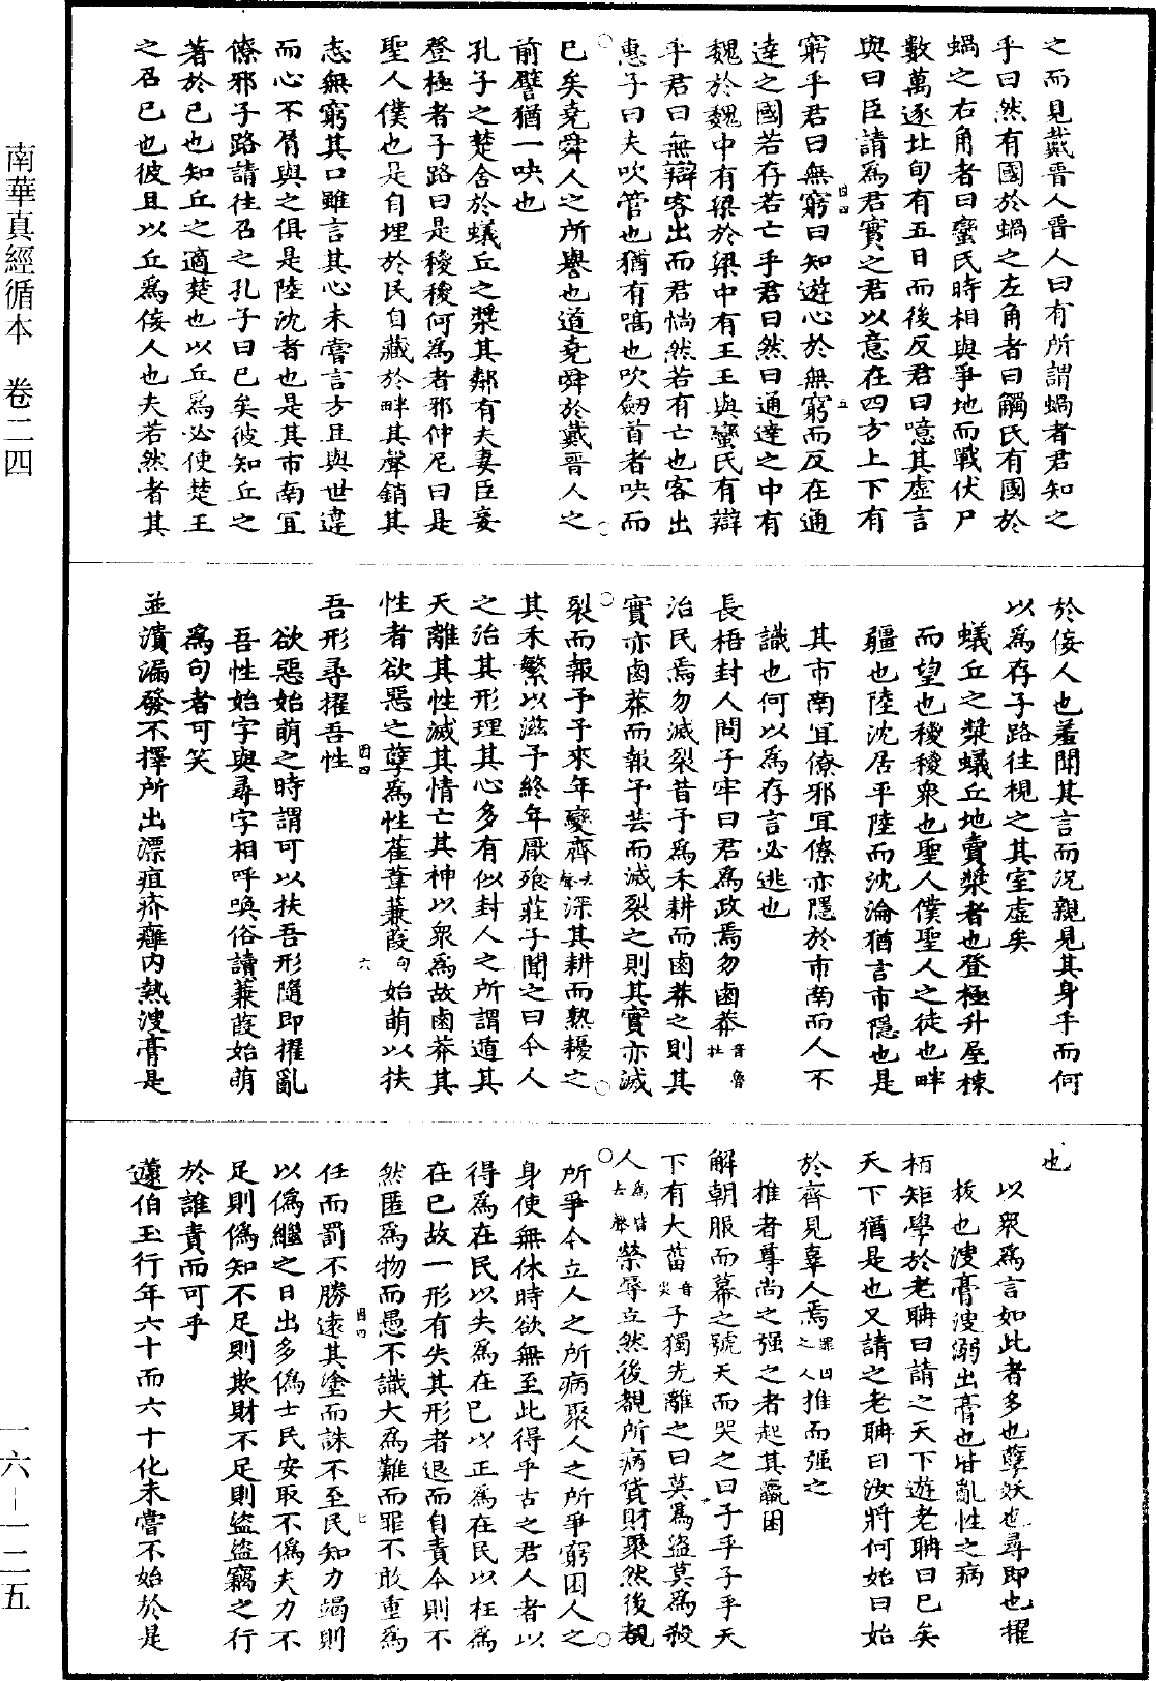 之而見戴晉人晉人曰有所謂蝸者君知之
乎曰然有國於蝸之左角者曰觸氏有國於
蝸之右角者曰蠻氏時相與爭地而戰伏尸
數萬逐北旬有五日而後反君曰噫其虛言
與曰臣請為君實之君以意在四方上下有
窮乎君曰無窮曰知遊心於無窮而反在通
達之國若存若亡乎君曰然曰通達之中有
魏於魏中有梁於梁中有王王與蠻氏有辯
乎君曰無辯客出而君惝然若有亡也客出
惠子曰夫吹管也猶有嗃也吹劒首者吷而
已矣堯舜人之所譽也道堯舜於戴晉人之
前譬猶一吷也
孔子之楚舍於蟻丘之漿其鄰有夫妻臣妾
登極者子路曰是稯稯何為者邪仲尼曰是
聖人僕也是自埋於民自藏於畔其聲銷其
志無窮其口雖言其心未嘗言方且與世違
而心不屑與之俱是陸沈者也是其市南宜
僚邪子路請往召之孔子曰已矣彼知丘之
著於已也知丘之適楚也以丘為必使楚王
之召已也彼且以丘為佞人也夫若然者其
於佞人也羞聞其言而況親見其身乎而何
以為存子路往視之其室虛矣
蟻丘之漿蟻丘地賣漿者也登極升屋棟
而望也稯稯衆也聖人僕聖人之徒也畔
疆也陸沈居平陸而沈淪猶言市隱也是
其市南宜僚邪宜僚亦隱於市南而人不
識也何以為存言必逃也
長梧封人問子牢曰君為政焉勿鹵莽音魯牡
治民焉勿滅裂昔予為禾耕而鹵莽之則其
實亦鹵莽而報予芸而滅裂之則其實亦滅
裂而報予予來年變齊去聲深其耕而熟耰之
其禾繁以滋予終年厭飱莊子聞之曰今人
之治其形理其心多有似封人之所謂遁其
天離其性滅其情亡其神以衆為故鹵莽其
性者欲惡之孽為性萑葦蒹葭句始萌以扶
吾形尋擢吾性
欲惡始萌之時謂可以扶吾形隨即擢亂
吾性始字與尋字相呼喚俗讀蒹葭始萌
為句者可笑
並潰漏發不擇所出漂疽疥癰內熱溲膏是
也
以衆為言如此者多也孽妖也尋即也擢
拔也溲膏溲溺出膏也皆亂性之病
栢矩學於老聃曰請之天下遊老聃曰已矣
天下猶是也又請之老聃曰汝將何始曰始
於齊見辜人焉罪囚之人推而强之
推者尊尚之强之者起其羸困
解朝服而幕之號天而哭之曰子乎子乎天
下有大菑音災子獨先離之曰莫為盜莫為殺
人為皆去聲榮辱立然後覩所病貨財聚然後覩
所爭今立人之所病聚人之所爭窮困人之
身使無休時欲無至此得乎古之君人者以
得為在民以失為在已以正為在民以枉為
在已故一形有失其形者退而自責今則不
然匿為物而愚不識大為難而罪不敢重為
任而罰不勝遠其塗而誅不至民知力竭則
以偽繼之日出多偽士民安取不偽夫力不
足則偽知不足則欺財不足則盜盜竊之行
於誰責而可乎
蘧伯玉行年六十而六十化未嘗不始於是
南華真經循本　卷二四
一六－一二五